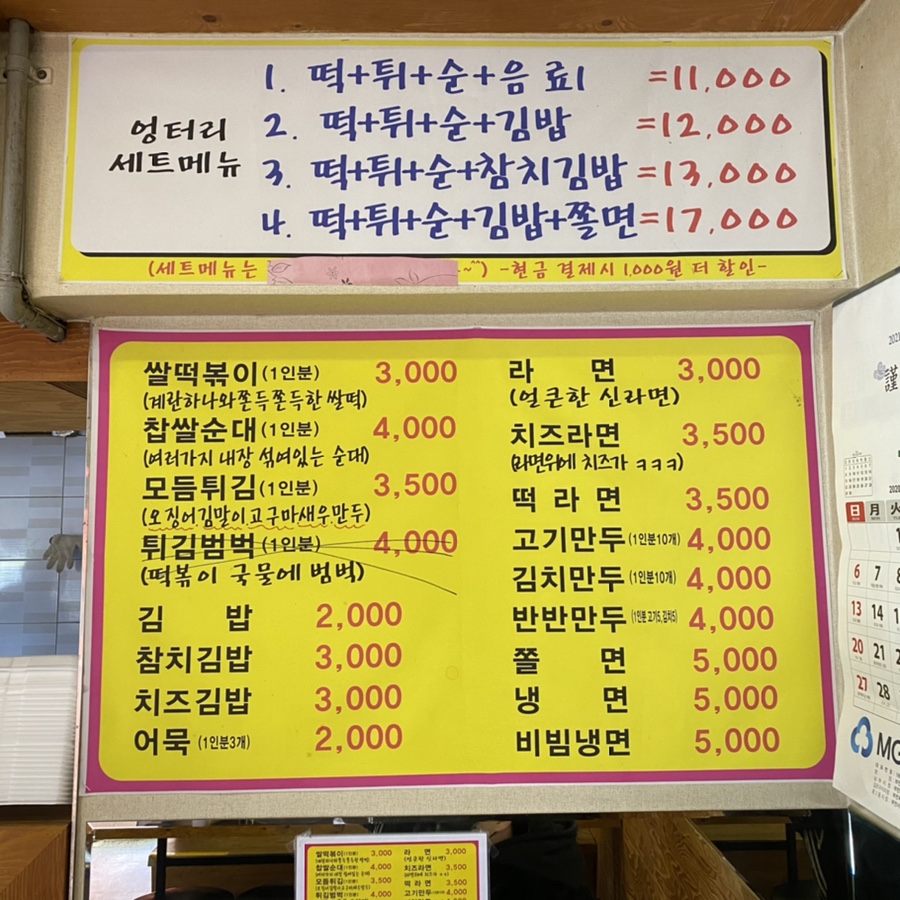 엉터리
세트메뉴
1. 떡+튀+순+음료1 =11,000
2. 떡+튀+순+김밥 =12,000
3. 떡+튀+순+참치김밥 =13,000
4. 떡+튀+순+김밥+쫄면=17,000
(세트메뉴는 ~^^) -현금 결제시 1,000원 더 할인-
쌀떡볶이(1인분) 3,000
(계란하나와쫀득쫀득한 쌀떡)
찹쌀순대(1인분) 4,000
(여러가지 내장 섞여있는 순대)
모듬튀김(1인분) 3,500
(오징어김말이고구마새우만두)
튀김범벅(1인분) 4,000
(떡볶이 국물에 범벅)
김 밥 2,000
참치김밥 3,000
치즈김밥 3,000
어묵 (1인분3개) 2,000
라 면 3,000
(얼큰한 신라면)
치즈라면 3,500
(라면위에 치즈가 ㅋㅋㅋ)
떡 라 면 3,500
고기만두(1인분10개) 4,000
김치만두(1인분10개) 4,000
반반만두(1인분 고기5,김치5) 4,000
쫄 면 5,000
냉 면 5,000
비빔냉면 5,000
2021
謹
日 月 火
1
6 7 8
13 14 1
20 21 2
27 28
MG
쌀떡볶이(1인분) 3,000
찹쌀순대(1인분) 4,000
모듬튀김(1인분) 3,500
튀김범벅(1인분) 4,000
라 면 3,000
(얼큰한 신라면)
치즈라면 3,500
떡 라 면 3,500
고기만두 4,000